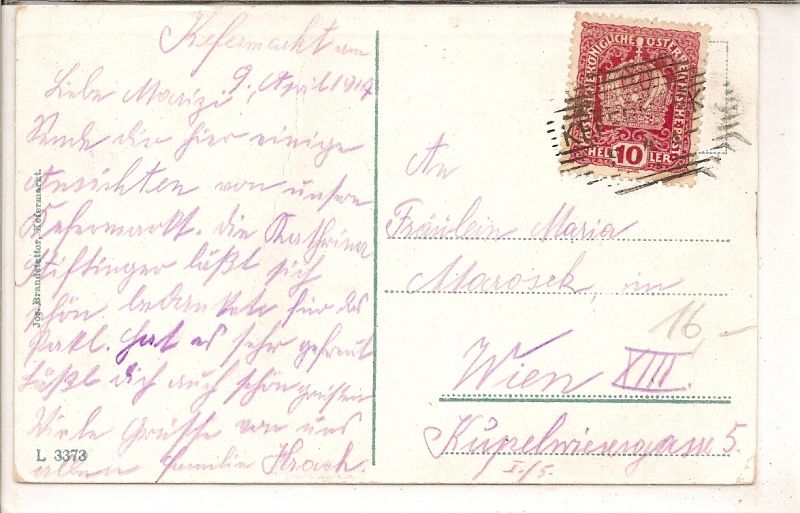 Kefermarkt am
9. April 1917
Liebe Marizi!
Sende dir hier einige
Ansichten von unsern
Kefermarkt. Die Kathrina
Stiftinger läßt sich
schön bedanken für das
Pakl. hat es sehr gefreut
Läßt dich auch schön grüßen
Viele Grüße von uns
allen Familie Hrach.
Jos. Brandstetter, Kefermarkt.
L 3373
KAISERLICHE KÖNIGLICHE ÖSTERREICHISCHE POST
HELLER
10
An
Fräulein Maria
Marosek, in
16 –
Wien XIII.
Kupelwiesergasse 5.
I./5.